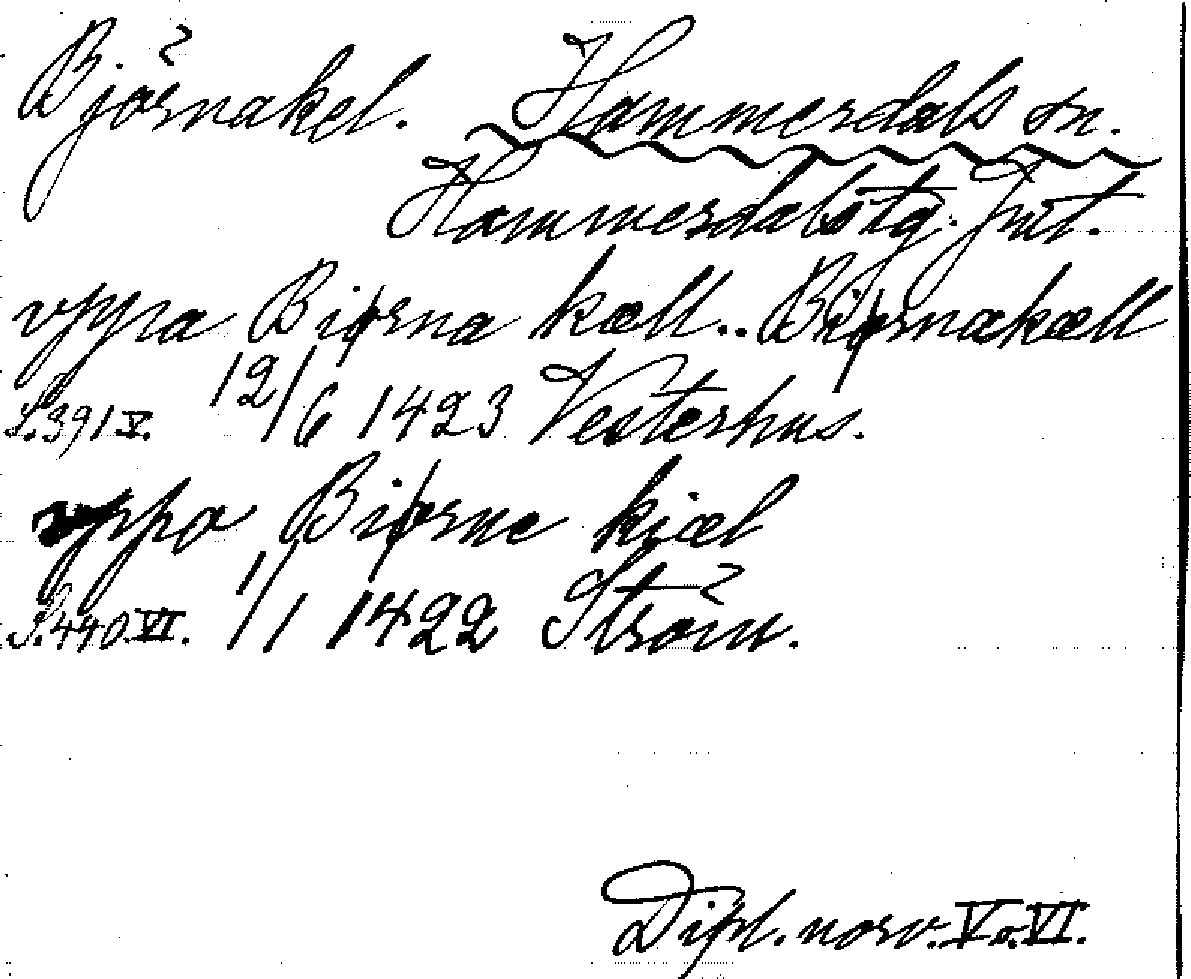 Björnakel. Hammerdals sn.
Hammerdals tg. Jmt.
vppa Biørna kæll.. Biørnakæll
S. 391 V. 12/6 1423 Vesterhus.
vppo Biørne kiæl
S. 440 VI. 1/1 1422 Ström.
Dipl. norv. V o. VI.